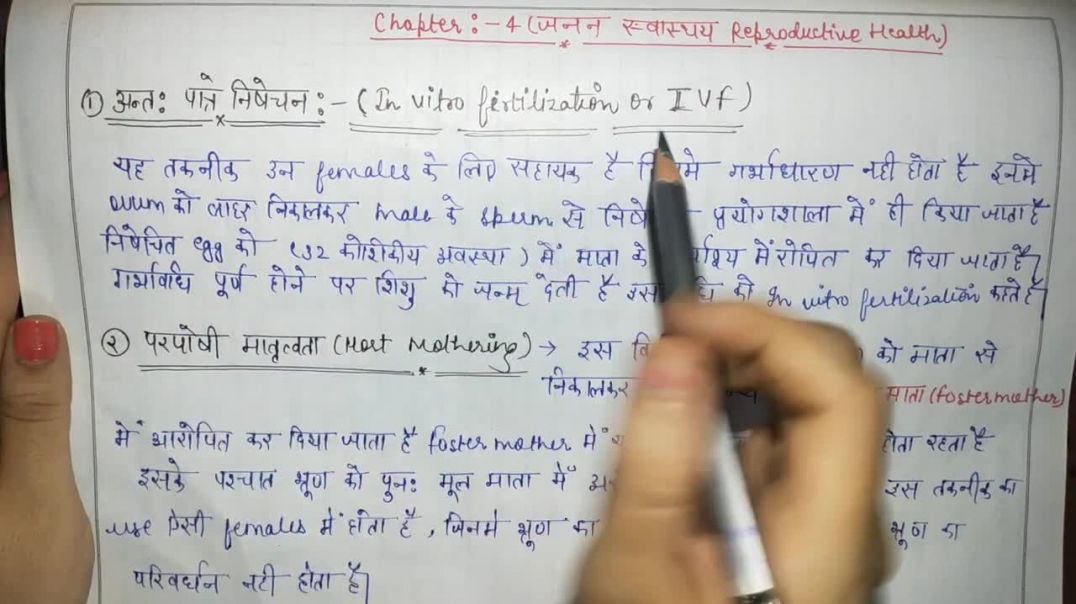 Chapter :- 4 (जनन स्वास्थय Reproductive Health)
① अन्तः पात्रे निषेचन :- (In vitro fertilization or IVF)
यह तकनीक उन females के लिए सहायक है मे गर्भाधारण नही होता है इनमे
ovum को बाहर निकालकर male के sperm से प्रयोगशाला में ही किया जाता है
निषेचित egg को (32 कोशिकीय अवस्था) में माता के में रोपित कर दिया जाता है।
गर्भावधि पूर्ण होने पर शिशु को जन्म देती है इस को In vitro fertilization कहते है।
② परपोषी मातृत्वता (Host Mothering) → इस को माता से
निकालकर माता (foster mother)
में आरोपित कर दिया जाता है foster mother में होता रहता है
इसके पश्चात भ्रूण को पुनः मूल माता में इस तकनीक का
use ऐसी females में होता है, जिनमे भ्रूण का भ्रूण का
परिवर्धन नही होता है।